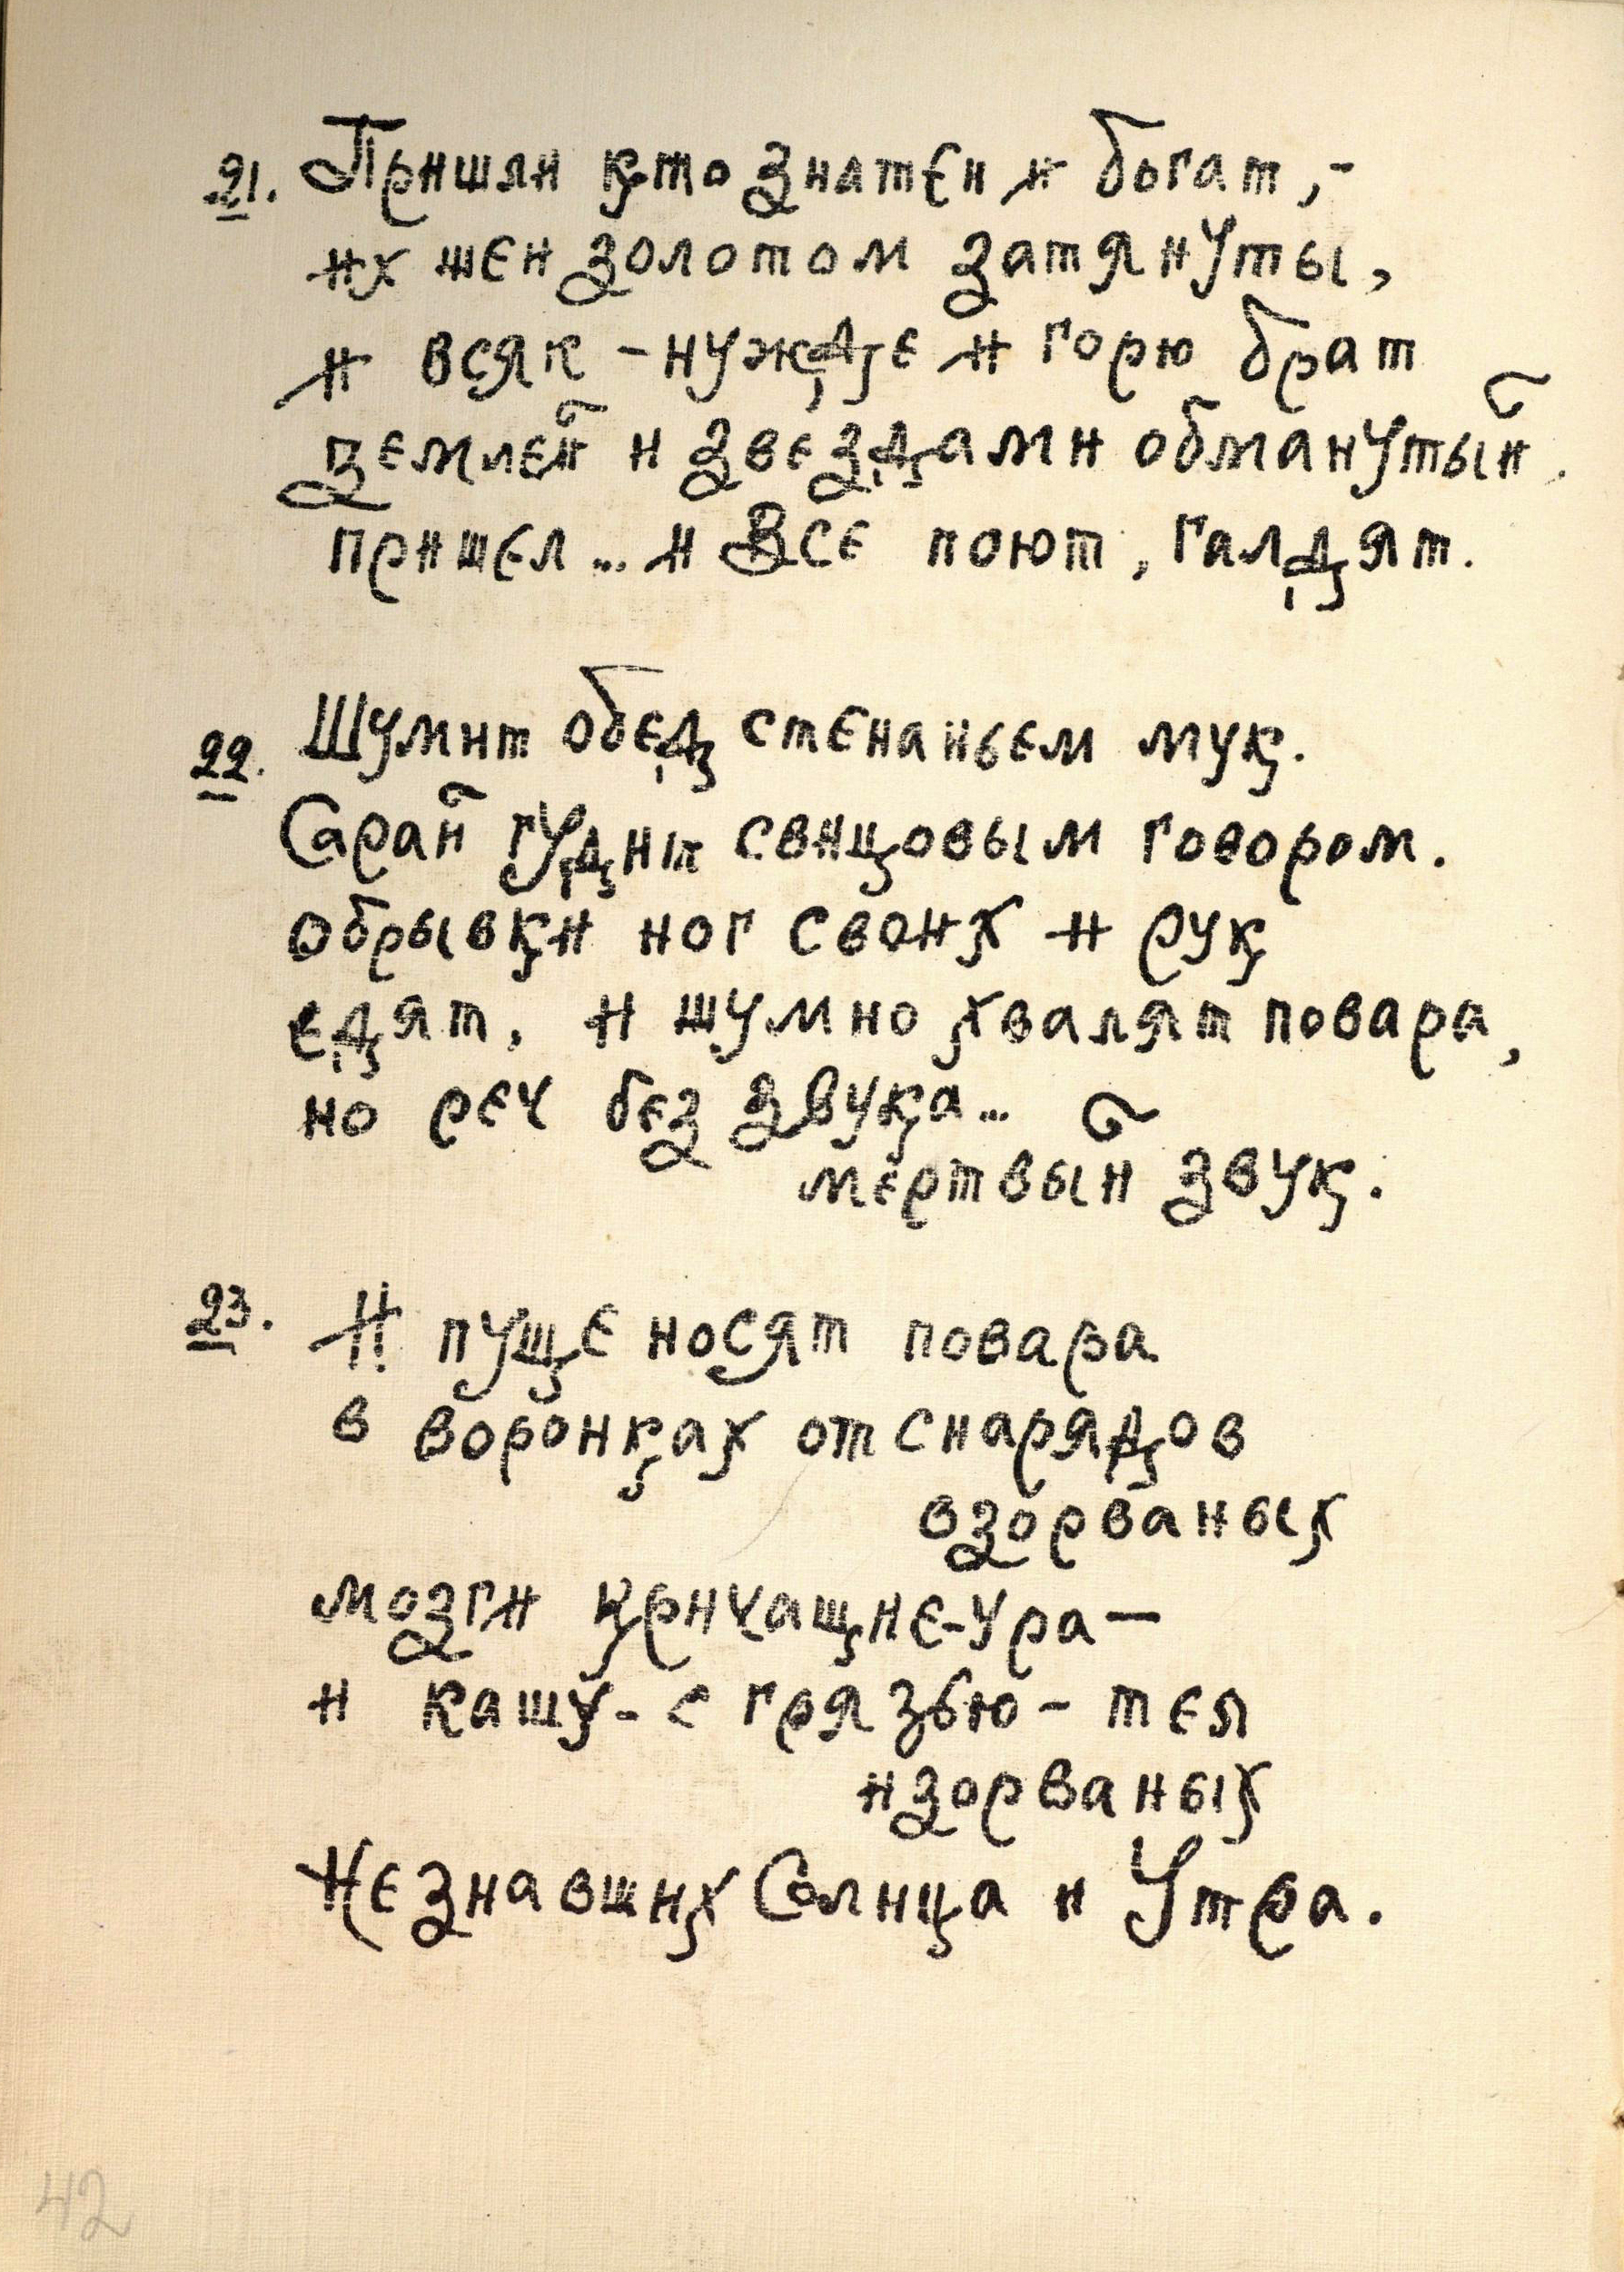 21. Пришли кто знатен и богат,-
их шеи золотом затянуты,
и всяк - нужде и горю брат
землей и звездами обманутый.
пришел... и Все поют, галдят.
22. Шумит обед стенаньем мук.
Сарай гудит свинцовым говором.
обрывки ног своих и рук
едят, и шумно хвалят повара,
но реч без звука...
мертвый звук.
23. И пуще носят повара
в воронках от снарядов
взорваных
мозги кричащие-ура-
и кашу-с грязью-тел
изорваных
Не знавших Солнца и Утра.
42